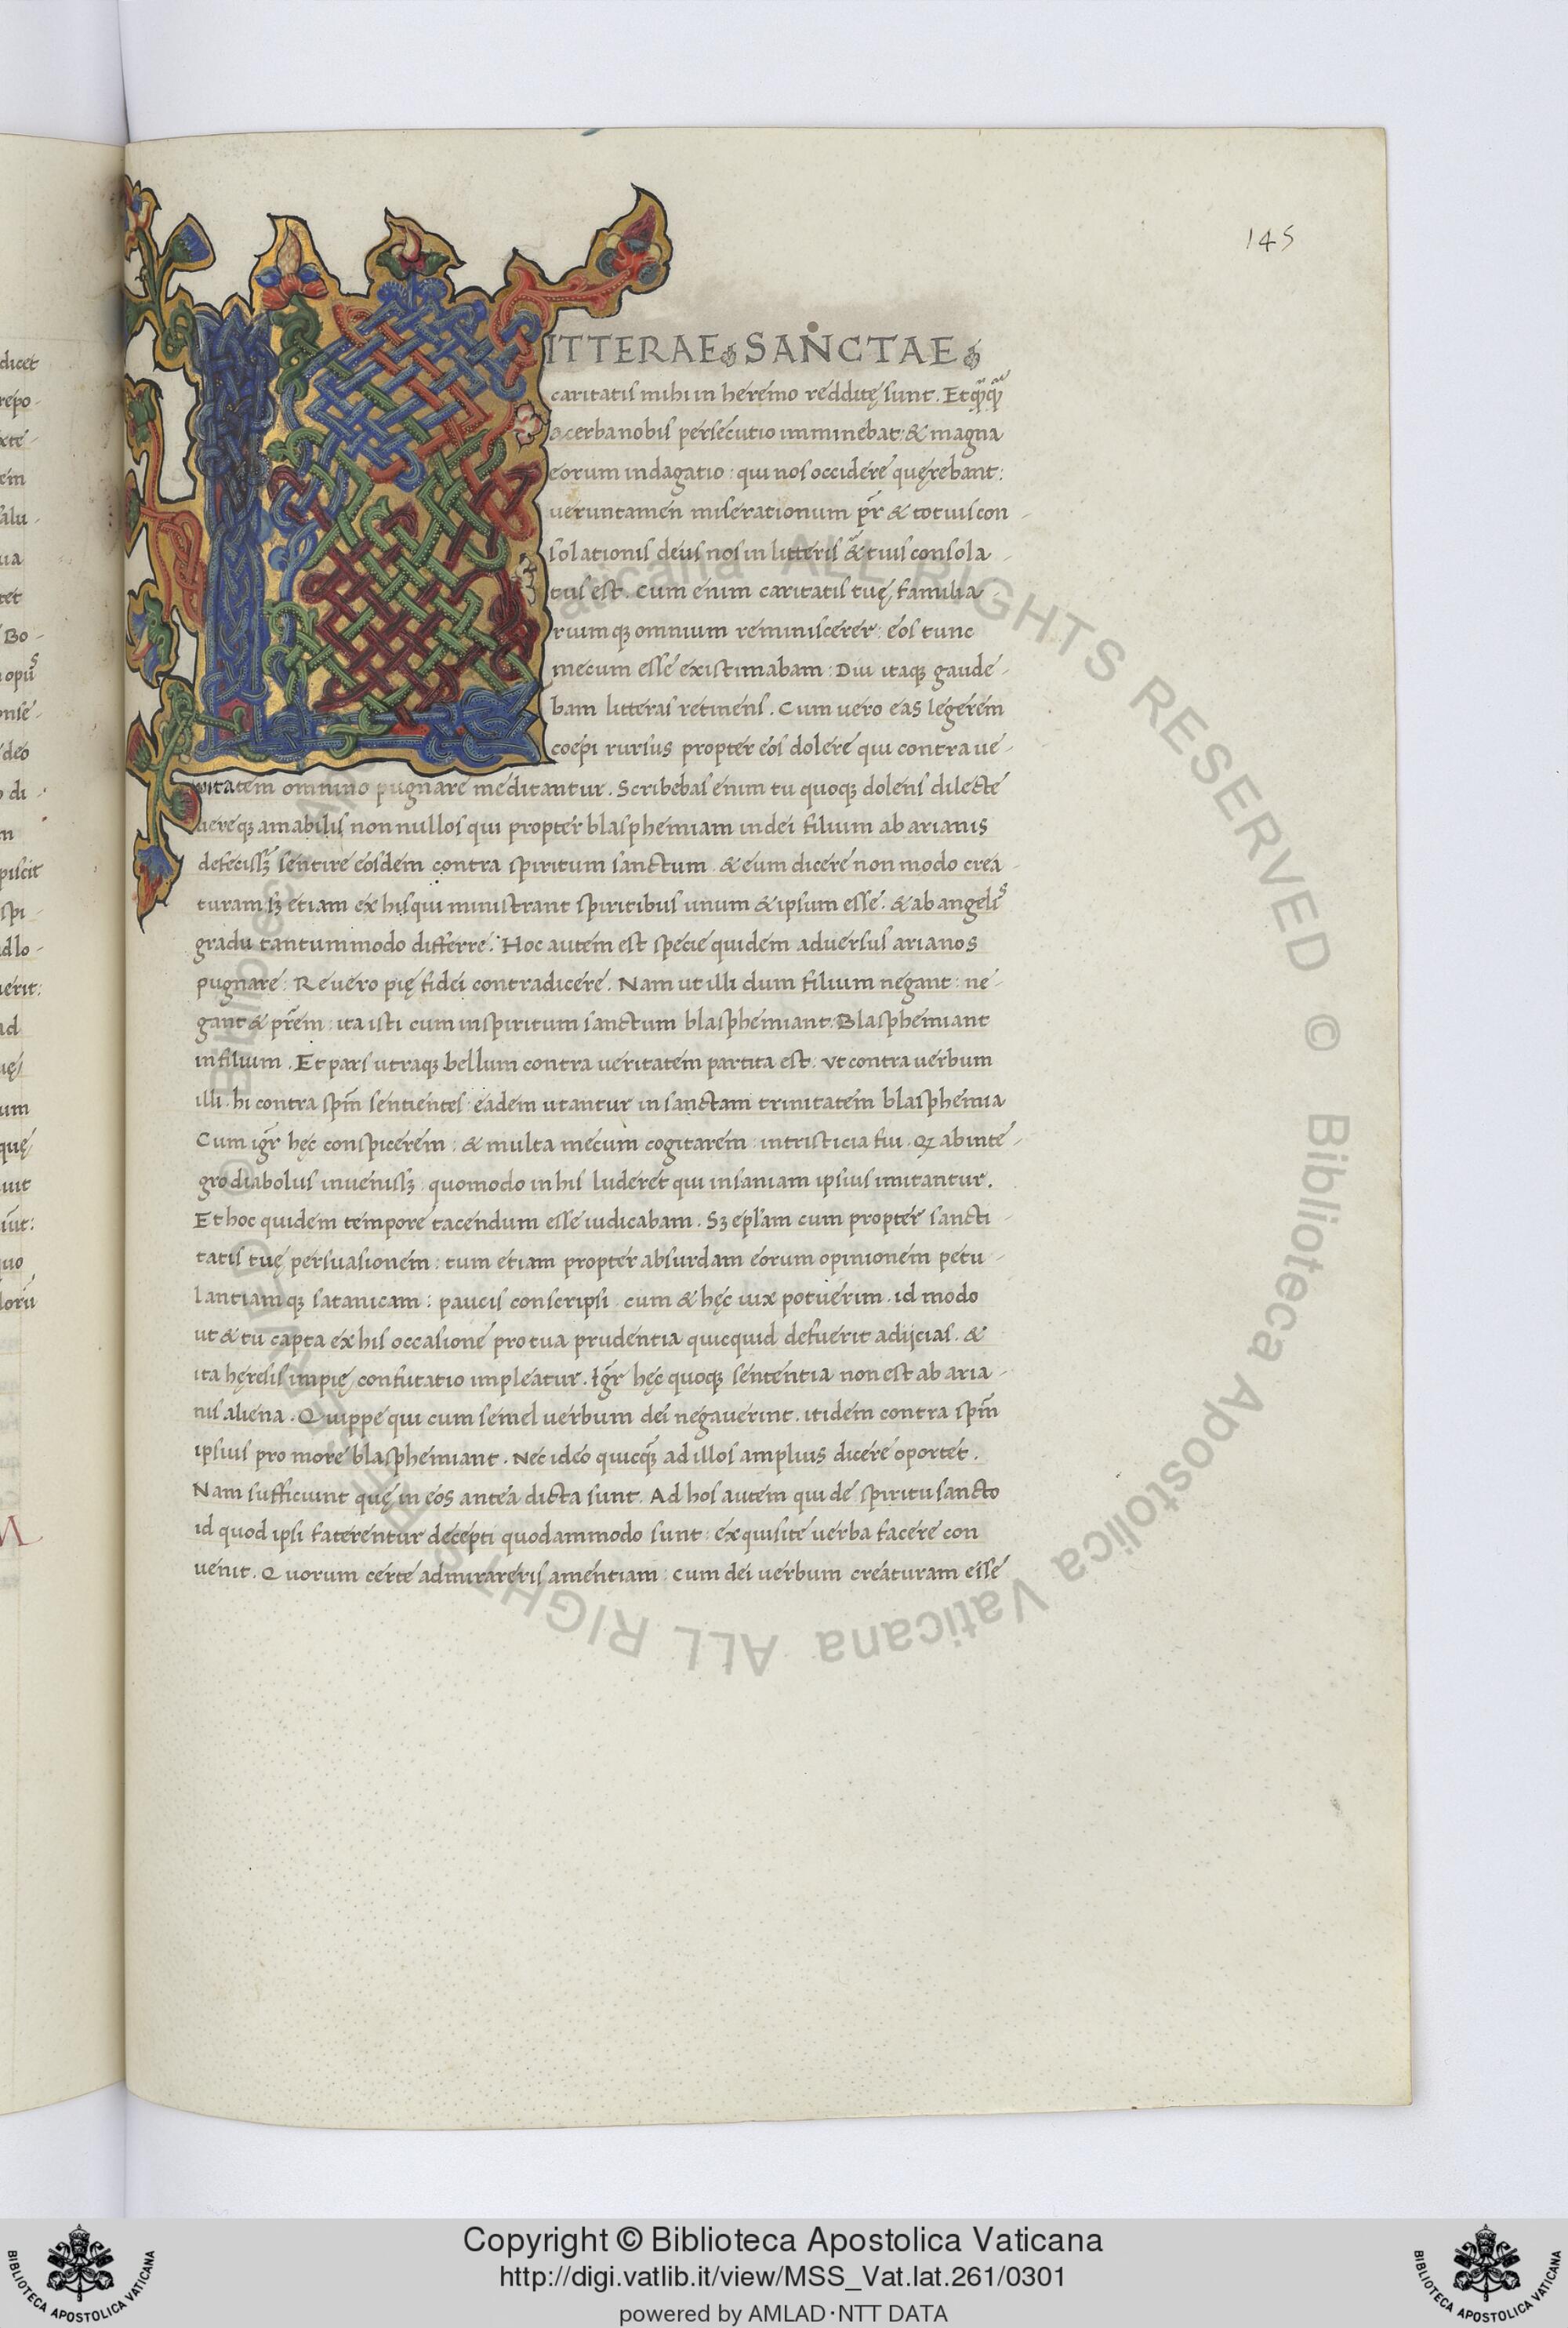 145
LITTERAE SANCTAE
caritatis mihi in heremo redditę sunt. Et qq̃
acerba nobis persecutio imminebat: & magna
eorum indagatio: qui nos occidere quęrebant:
veruntamen miserationum pr̃ & totius con-
solationis deus nos in litteris & tuis consola-
tus est. Cum enim caritatis tuę, familia-
riumqꝫ omnium reminiscerer: eos tunc
mecum esse existimabam: Diu itaqꝫ gaude-
bam litteras retinens. Cum uero eas legerem
coepi rursus propter eos dolere qui contra ue-
ritatem omnino pugnare meditantur. Scribebas enim tu quoqꝫ dolens dilecte
uereqꝫ amabilis non nullos qui propter blasphemiam in dei filium ab arianis
defecissꝫ sentire eosdem contra spiritum sanctum. & eum dicere non modo crea-
turam sꝫ etiam ex his qui ministrant spiritibus unum & ipsum esse. & ab angelis
gradu tantummodo differre. Hoc autem est specie quidem aduersus arianos
pugnare: Re uero pię fidei contradicere. Nam ut illi dum filium negant: ne-
gant & pr̃em: ita isti cum in spiritum sanctum blasphemiant. Blasphemiant
in filium. Et pars utraqꝫ bellum contra veritatem partita est: vt contra uerbum
illi. hi contra spm̃ sentientes: eadem utantur in sanctam trinitatem blasphemia
Cum igr̃ hęc conspicerem: & multa mecum cogitarem: in tristicia fui. Qꝫ ab inte-
gro diabolus inuenissꝫ: quomodo in his luderet qui insaniam ipsius imitantur.
Et hoc quidem tempore tacendum esse iudicabam. Sꝫ epl̃am cum propter sancti-
tatis tuę persuasionem: tum etiam propter absurdam eorum opinionem petu-
lantiamqꝫ satanicam: paucis conscripsi. cum & hęc uix potuerim. id modo
ut & tu capta ex his occasione pro tua prudentia quicquid defuerit adijcias. &
ita hęresis impię confutatio impleatur. Igr̃ hęc quoqꝫ sententia non est ab aria-
nis aliena. Quippe qui cum semel uerbum dei negauerint. itidem contra spm̃
ipsius pro more blasphemiant. Nec ideo quicq̃ ad illos amplius dicere oportet.
Nam sufficiunt quę in eos antea dicta sunt. Ad hos autem qui de spiritu sancto
id quod ipsi faterentur decepti quodammodo sunt: exquisite uerba facere con
uenit. Quorum certe admirareris amentiam: cum dei uerbum creaturam esse
Copyright © Biblioteca Apostolica Vaticana
http://digi.vatlib.it/view/MSS_Vat.lat.261/0301
powered by AMLAD·NTT DATA
BIBLIOTECA APOSTOLICA VATICANA
BIBLIOTECA APOSTOLICA VATICANA